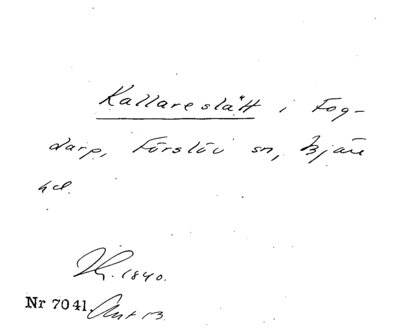 Kallareslätt i Fog-
darp, Förslöv sn, Bjäre
hd.
1840.
Nr 7041. Ant 13.